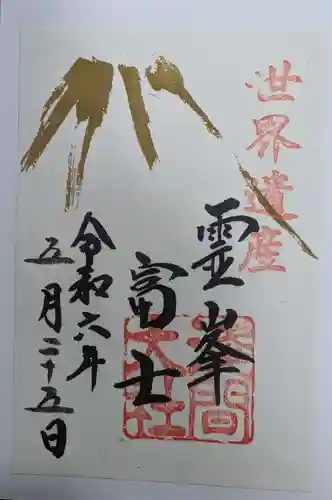 世界遺産
霊峯
富士
令和六年
五月二十五日
浅間
大社